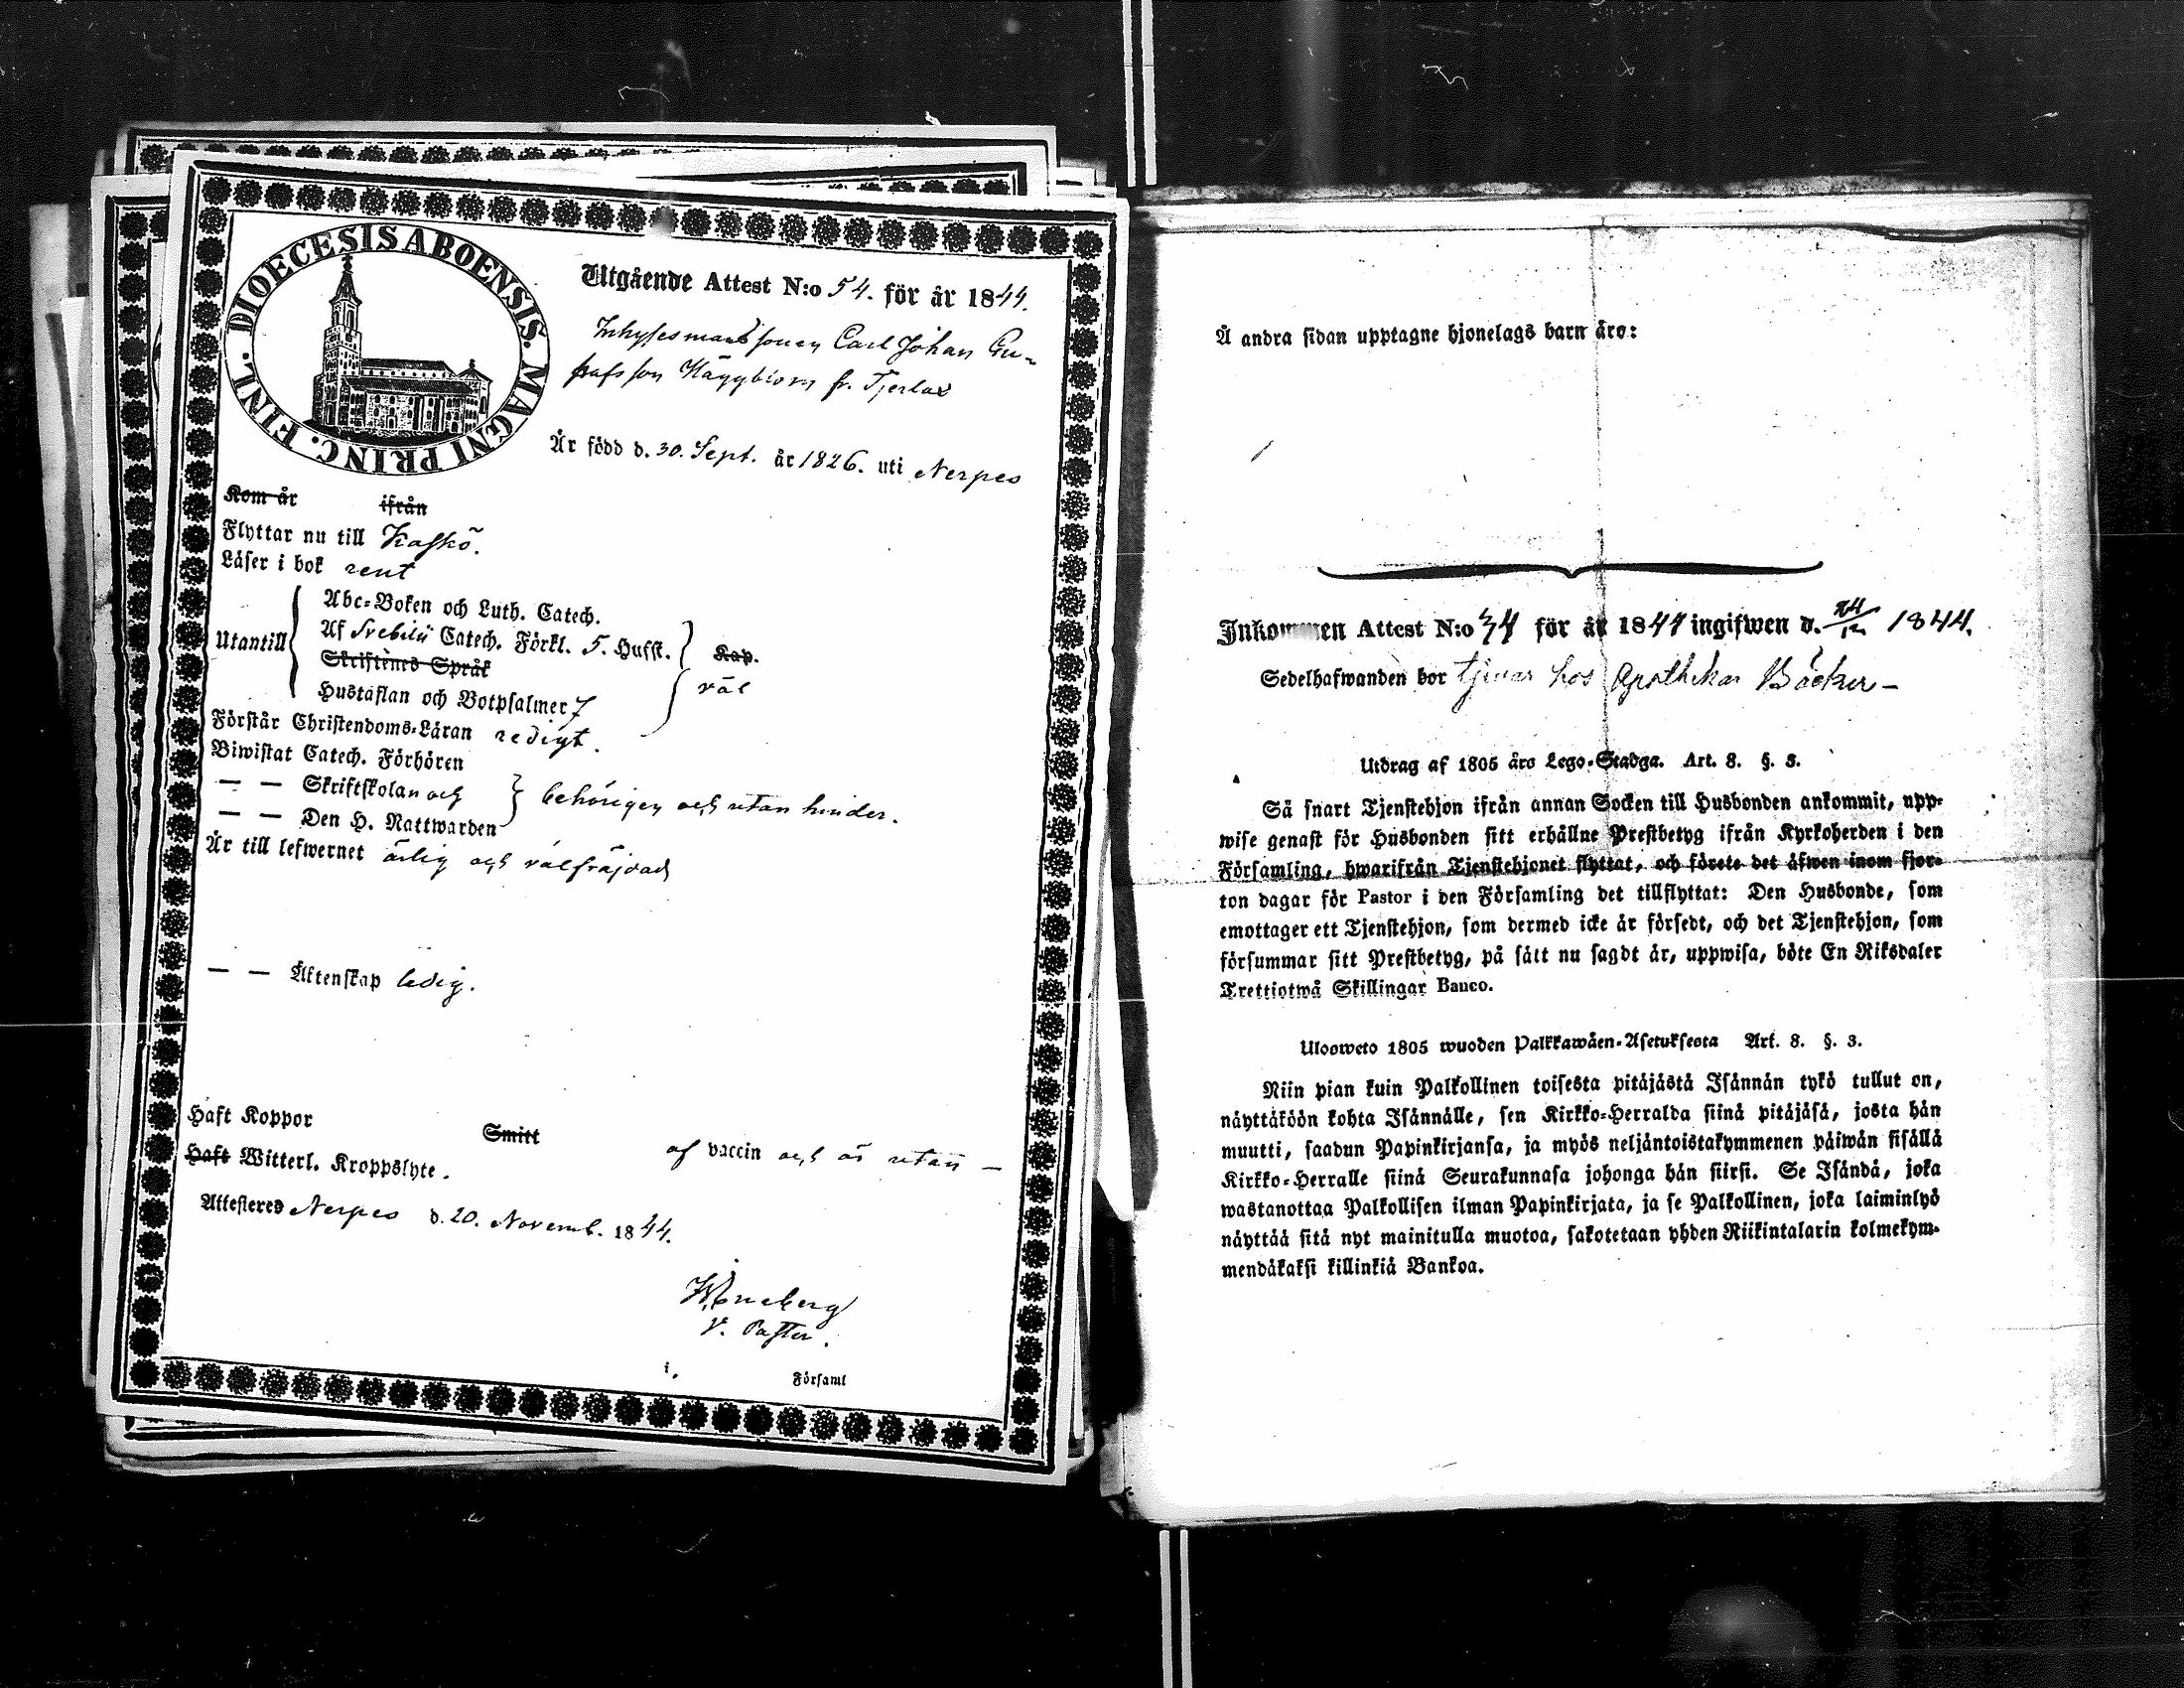 DIOECESIS ABOENSIS. MAGNI PRINC. FINL.
Utgående Attest N:o 54. för år 1844.
Inhysesmanssonen Carl Johan Gu-
stafsson Häggblom fr. Tjerlax
Är född d. 30. Sept. år 1826. uti Nerpes
Kom år ifrån
Flyttar nu till Kaskö.
Läser i bok rent
Utantill
Abc-Boken och Luth. Catech.
Af Svebilii Catech. Förkl. 5. Hufst.
Skriftenes Språk
Hustaflan och Botpsalmer 7
Kap.
väl
Förstår Christendoms-Läran redigt.
Biwistat Catech. Förhören
— — Skriftskolan och
— — Den H. Nattwarden
behörigen och utan hinder.
Är till lefwernet ärlig och välfräjdad
— — Äktenskap ledig.
Haft Koppor Smitt af vaccin och är utan —
Haft Witterl. Kroppslyte.
Attesteres Nerpes d. 20. Novemb. 1844.
V. Pastor.
i. Församl
Å andra sidan upptagne hjonelags barn äro:
Inkommen Attest N:o 74 för år 1844 ingifwen d. 24/12 1844.
Sedelhafwanden bor tjenar hos Apothekar Bäcker –
Utdrag af 1805 års Lego-Stadga. Art. 8. §. 3.
Så snart Tjenstehjon ifrån annan Socken till Husbonden ankommit, upp-
wise genast för Husbonden sitt erhållne Prestbetyg ifrån Kyrkoherden i den
Församling, hwarifrån Tjenstehjonet flyttat, och förete det äfwen inom fjor-
ton dagar för Pastor i den Församling det tillflyttat: Den Husbonde, som
emottager ett Tjenstehjon, som dermed icke är försedt, och det Tjenstehjon, som
försummar sitt Prestbetyg, på sätt nu sagdt är, uppwisa, böte En Riksdaler
Trettiotwå Skillingar Banco.
Uloosweto 1805 wuoden Palkkawäen-Asetuksesta Art. 8. §. 3.
Niin pian kuin Palkollinen toisesta pitäjästä Isännän tykö tullut on,
näyttäköön kohta Isännälle, sen Kirkko-Herralda siinä pitäjäsä, josta hän
muutti, saadun Papinkirjansa, ja myös neljäntoistakymmenen päiwän sisällä
Kirkko-Herralle siinä Seurakunnasa johonga hän siirsi. Se Isändä, joka
wastanottaa Palkollisen ilman Papinkirjata, ja se Palkollinen, joka laiminlyö
näyttää sitä nyt mainitulla muotoa, sakotetaan yhden Riikintalarin kolmekym-
mendäkaksi killinkiä Bankoa.